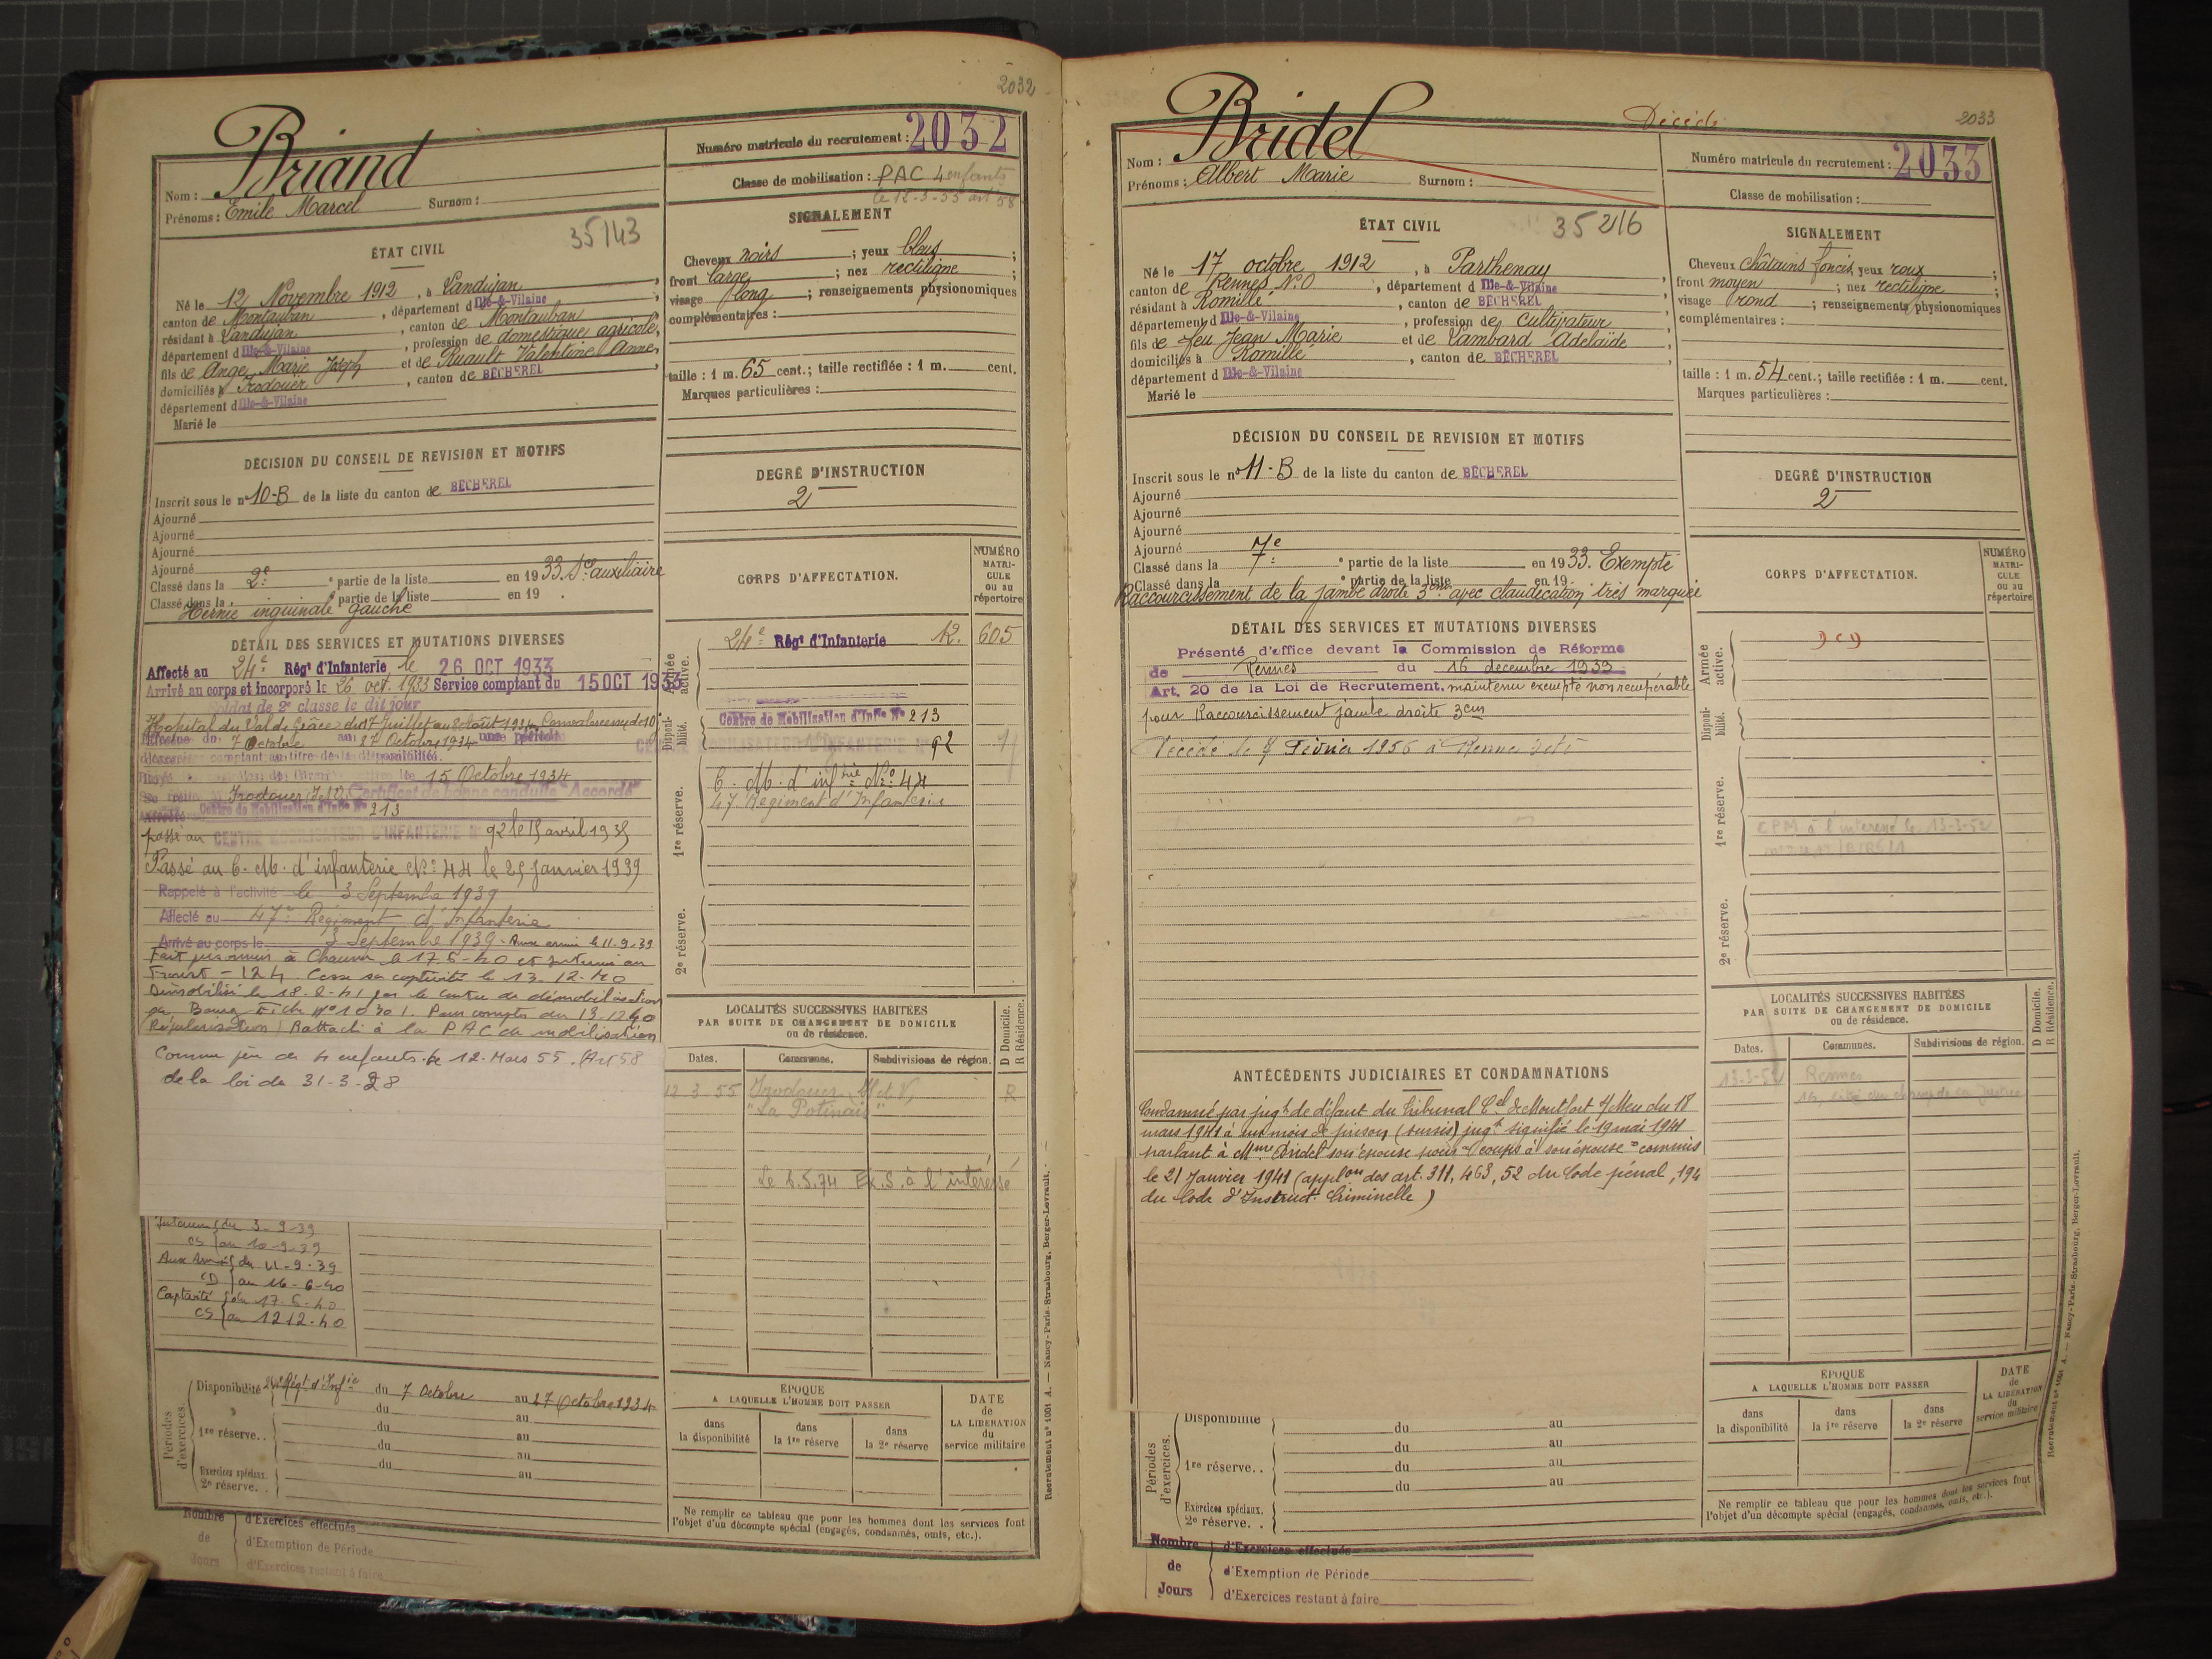 2032
Briand
Nom :
Prénoms : Emile Marcel Surnom :
Numéro matricule du recrutement : 2032
Classe de mobilisation : PAC 4 enfants
le 12-3-55 art 58
ÉTAT CIVIL
35143
Né le 12 Novembre 1912, à Landujan,
canton de Montauban, département d Ille-&-Vilaine,
résidant à Landujan, canton de Montauban
département d Ille-&-Vilaine, profession de domestique agricole,
fils de Ange Marie Joseph et de Ruault Valentine Anne,
domiciliés à Irodouër, canton de BÉCHEREL
département d Ille-&-Vilaine
Marié le
SIGNALEMENT
Cheveux noirs ; yeux bleus ;
front large ; nez rectiligne ;
visage long ; renseignements physionomiques
complémentaires :
taille : 1 m. 65 cent. ; taille rectifiée : 1 m. cent.
Marques particulières :
DÉCISION DU CONSEIL DE REVISION ET MOTIFS
Inscrit sous le n° 10-B de la liste du canton de BÉCHEREL
Ajourné
Ajourné
Ajourné
Ajourné
Classé dans la 2e partie de la liste en 1933. Sce auxiliaire
Classé dans la partie de la liste en 19 .
Hernie inguinale gauche
DEGRÉ D'INSTRUCTION
2
CORPS D'AFFECTATION.
NUMÉRO MATRICULE ou au répertoire
Armée active.
24e Régt d'Infanterie 12. 605
Disponibilité.
Centre de Mobilisation d'Infie N° 213
CENTRE MOBILISATEUR D'INFANTERIE N° 92
1re réserve.
C. M. d'infrie N° 44
47. Régiment d'Infanterie
2e réserve.
DÉTAIL DES SERVICES ET MUTATIONS DIVERSES
Affecté au 24e Régt d'Infanterie le 26 OCT 1933
Arrivé au corps et incorporé le 26 oct. 1933 Service comptant du 15 OCT 1933
Soldat de 2e classe le dit jour
Hopital du Val de Grâce du 17 Juillet au 2 Août 1934 Convalescence de 10 j
du 7 Octobre au 27 Octobre 1934 une période
comptant au titre de la disponibilité.
15 Octobre 1934
Se retire à Irodouer (I&V) Certificat de bonne conduite "Accordé"
Affecté Centre de Mobilisation d'Infie N° 213
passé au CENTRE MOBILISATEUR D'INFANTERIE N° 92 le 15 avril 1935
Passé au C. M. d'infanterie N° 44 le 25 Janvier 1939
Rappelé à l'activité le 3 Septembre 1939
Affecté au 47e Régiment d'Infanterie
Arrivé au corps le 3 Septembre 1939 - Aux armées le 11-9-39
Fait prisonnier à le 17-6-40 et Interné au
Fronst - 124 Cesse sa captivité le 13-12-40
Démobilisé le 18-2-41 par le centre de démobilisation
de Bourg Fiche N° 10301. Pour compter du 13-12-40
(Régularisation) Rattaché à la PAC de mobilisation
Comme père de 4 enfants le 12-Mars 55. (Art 58
de la loi du 31-3-28
Intérieur du 3-9-39
CS au 10-9-39
Aux Armées du 11-9-39
CD au 16-6-40
Captivité du 17-6-40
CS au 12 12-40
LOCALITÉS SUCCESSIVES HABITÉES
PAR SUITE DE CHANGEMENT DE DOMICILE
ou de résidence.
D Domicile. R Résidence.
Dates. Communes. Subdivisions de région.
12 3-55 Irodouer I et V. R
"La Potinais"
Le 6.5.74 Ex.S. à l'intéressé
Périodes d'exercices.
Disponibilité 24e Régt d'Infie du 7 Octobre au 27 Octobre 1934
du au
1re réserve.. du au
du au
du au
Exercices spéciaux.
2e réserve. .
ÉPOQUE
A LAQUELLE L'HOMME DOIT PASSER
dans la disponibilité
dans la 1re réserve
dans la 2e réserve
DATE de LA LIBÉRATION du service militaire
Ne remplir ce tableau que pour les hommes dont les services font
l'objet d'un décompte spécial (engagés, condamnés, omis, etc.).
Nombre de Jours
d'Exercices effectués
d'Exemption de Période
d'Exercices restant à faire
Recrutement n° 1001 A. — Nancy-Paris-Strasbourg, Berger-Levrault.
2033
Décédé
Bridel
Nom :
Prénoms : Albert Marie Surnom :
Numéro matricule du recrutement : 2033
Classe de mobilisation :
ÉTAT CIVIL
35216
Né le 17 octobre 1912, à Parthenay,
canton de Rennes N.O, département d Ille-&-Vilaine,
résidant à Romillé, canton de BÉCHEREL,
département d Ille-&-Vilaine, profession de cultivateur,
fils de feu Jean Marie et de Lambard Adelaïde,
domiciliés à Romillé, canton de BÉCHEREL
département d Ille-&-Vilaine
Marié le
SIGNALEMENT
Cheveux châtains foncés, yeux roux ;
front moyen ; nez rectiligne ;
visage rond ; renseignements physionomiques
complémentaires :
taille : 1 m. 54 cent. ; taille rectifiée : 1 m. cent.
Marques particulières :
DÉCISION DU CONSEIL DE REVISION ET MOTIFS
Inscrit sous le n° 11-B de la liste du canton de BÉCHEREL
Ajourné
Ajourné
Ajourné
Ajourné
Classé dans la 7e partie de la liste en 1933. Exempté
Classé dans la partie de la liste en 19
Raccourcissement de la jambe droite 3cm avec claudication très marquée
DEGRÉ D'INSTRUCTION
2
CORPS D'AFFECTATION.
NUMÉRO MATRICULE ou au répertoire
Armée active.
DCD
Disponibilité.
1re réserve.
CPM à l'intéressé le 13-3-52
2e réserve.
DÉTAIL DES SERVICES ET MUTATIONS DIVERSES
Présenté d'office devant la Commission de Réforme
de Rennes du 16 decembre 1939
Art. 20 de la Loi de Recrutement, maintenu exempté non récupérable
pour Raccourcissement jambe droite 3cm
Décédé le 8 Février 1956 à Rennes
ANTÉCÉDENTS JUDICIAIRES ET CONDAMNATIONS
Condamné par jugt de défaut du Tribunal Cel de Montfort s/Meu du 18
mars 1941 à un mois de prison (sursis) jugt signifié le 19 mai 1941
parlant à Mme Bridel son épouse pour "Coups à son épouse" commis
le 21 Janvier 1941 (applon des art. 311, 463, 52 du Code pénal, 194
du Code d'Instruct. Criminelle)
LOCALITÉS SUCCESSIVES HABITÉES
PAR SUITE DE CHANGEMENT DE DOMICILE
ou de résidence.
D Domicile. R Résidence.
Dates. Communes. Subdivisions de région.
13-3-52 Rennes
16, cité du champ de la Justice
Périodes d'exercices.
Disponibilité du au
du au
1re réserve. . du au
du au
Exercices spéciaux.
2e réserve. .
ÉPOQUE
A LAQUELLE L'HOMME DOIT PASSER
dans la disponibilité
dans la 1re réserve
dans la 2e réserve
DATE de LA LIBÉRATION du service militaire
Ne remplir ce tableau que pour les hommes dont les services font
l'objet d'un décompte spécial (engagés, condamnés, omis, etc.).
Nombre de Jours
d'Exercices effectués
d'Exemption de Période
d'Exercices restant à faire
Recrutement n° 1001 A. — Nancy-Paris-Strasbourg, Berger-Levrault.